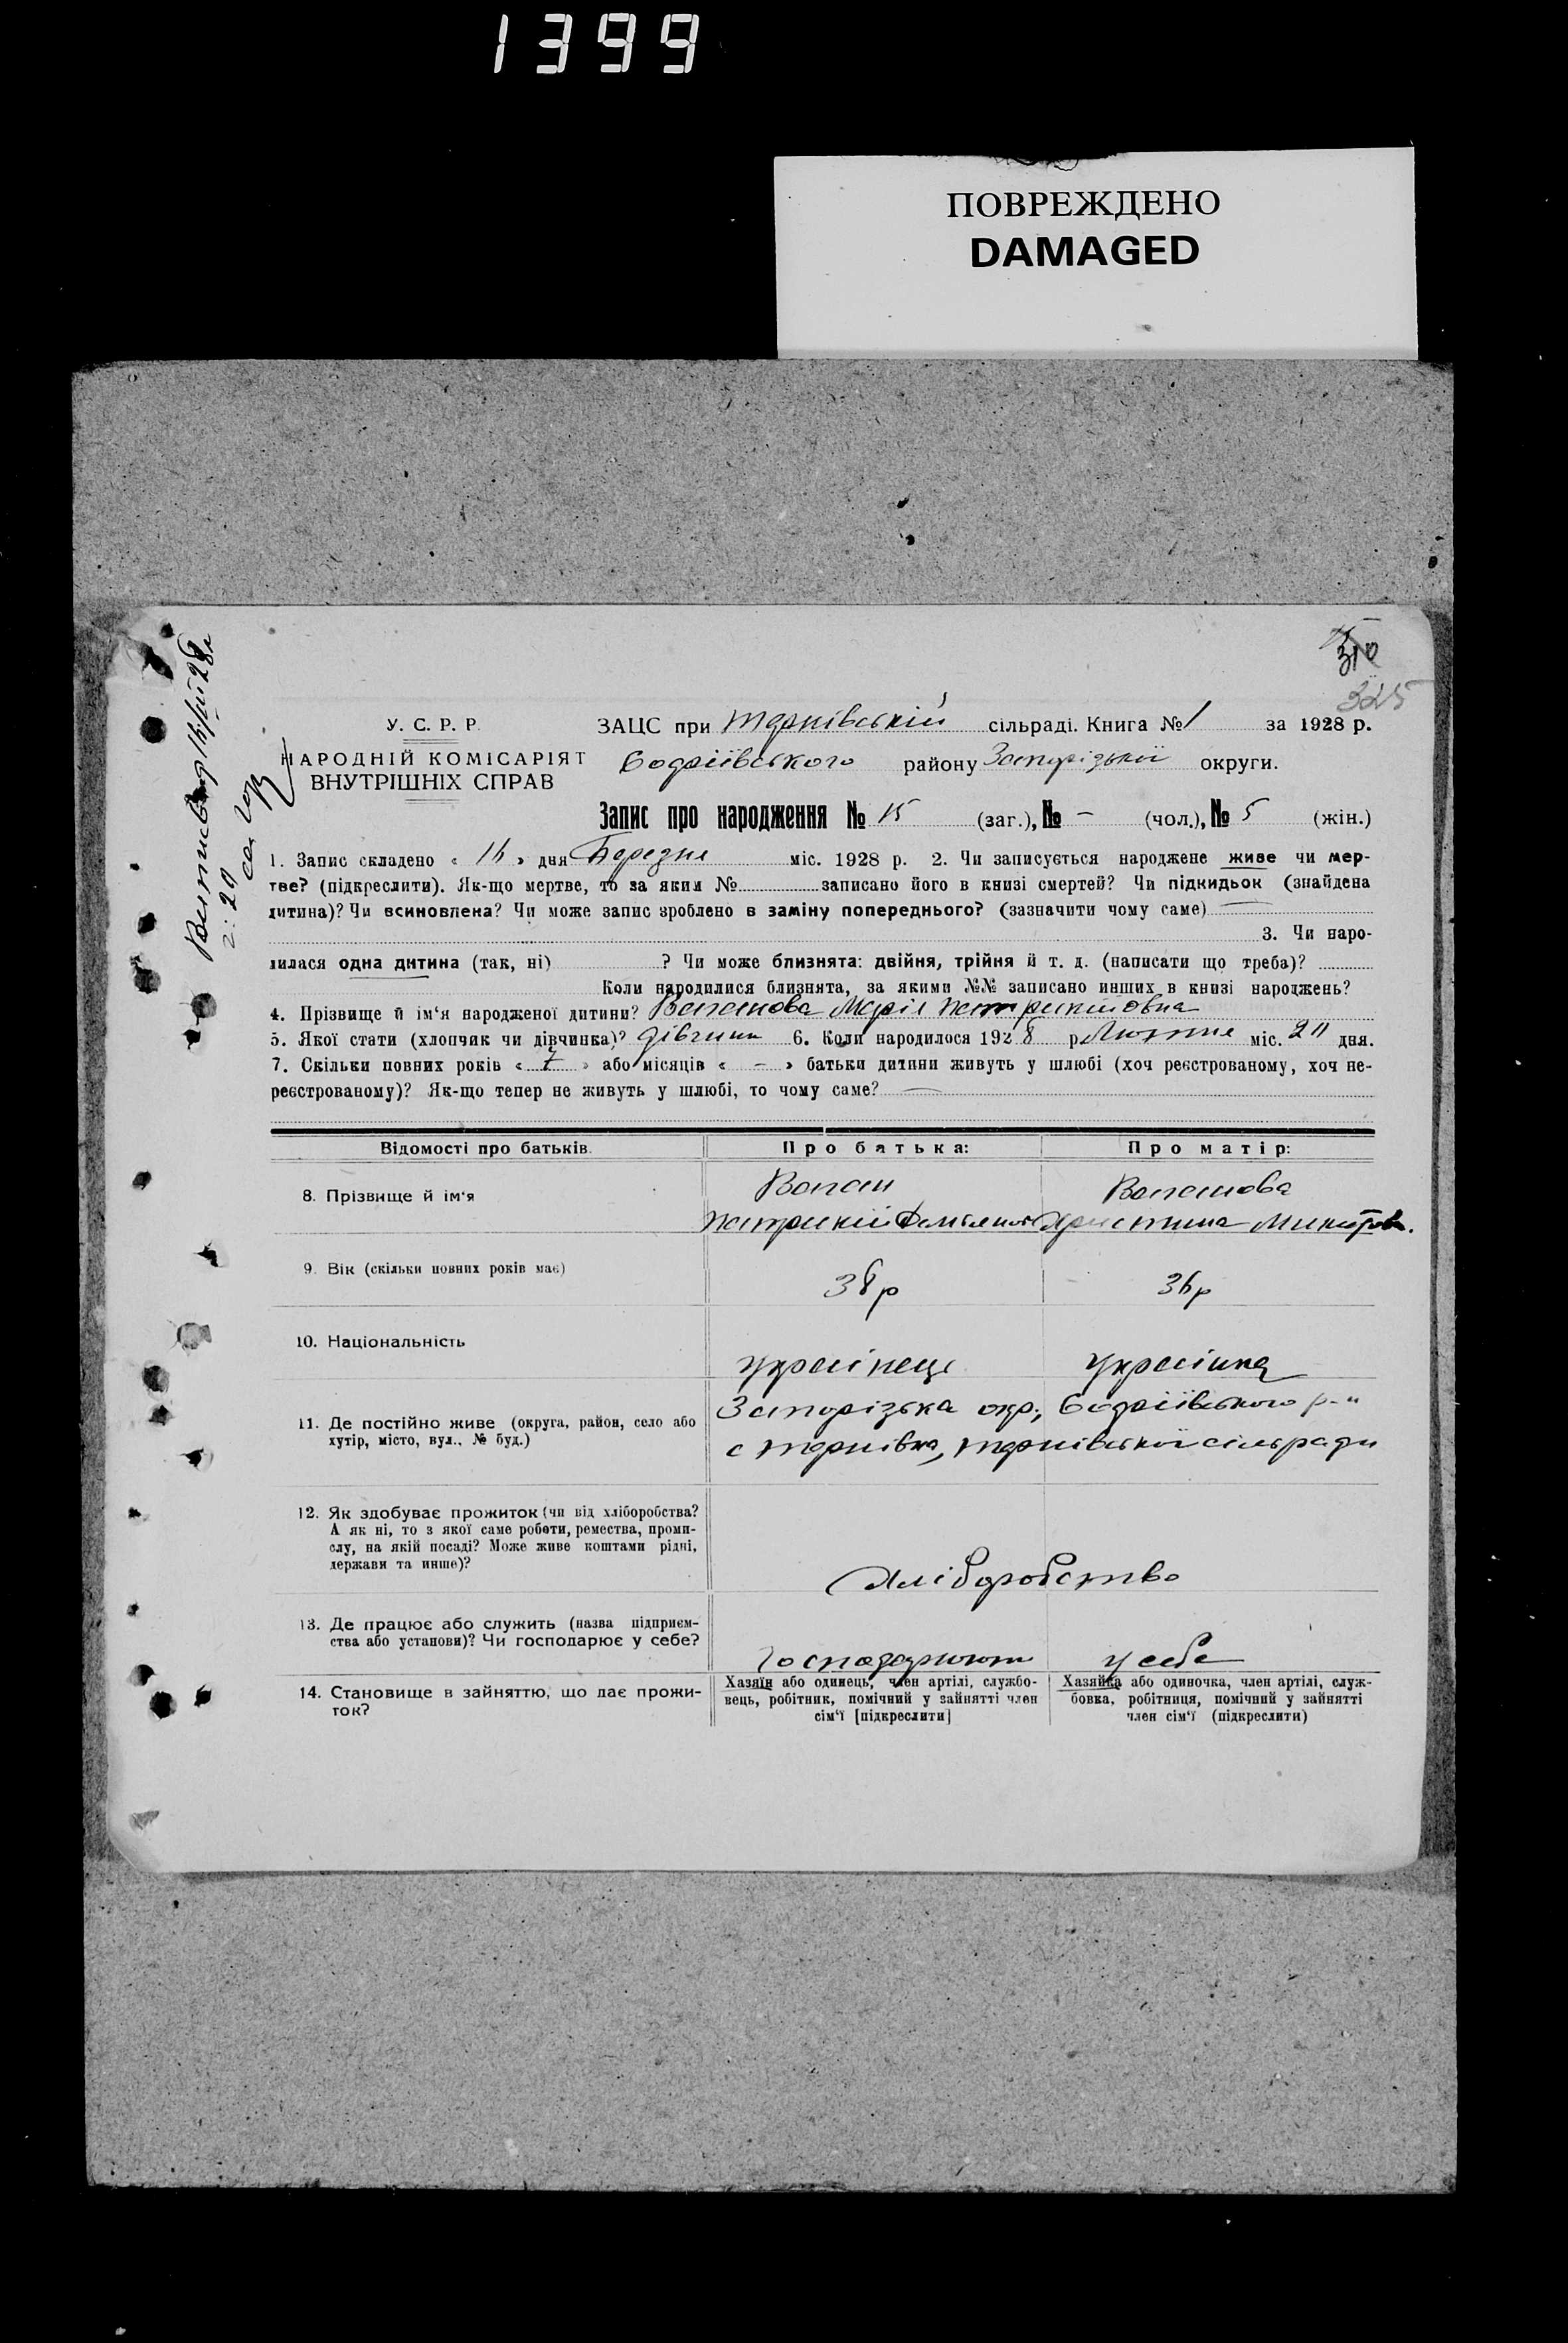 1399
ПОВРЕЖДЕНО
DAMAGED
310
325
У. С. Р. Р.
НАРОДНІЙ КОМІСАРІЯТ
ВНУТРІШНІХ СПРАВ
ЗАЦС при Тернівській сільраді. Книга № 1 за 1928 р.
району Запорізької округи.
Запис про народження № 15 (заг.), № - (чол.), № 5 (жін.)
1. Запис складено « 16 » дня Березня міс. 1928 р. 2. Чи записується народжене живе чи мер-
тве? (підкреслити). Як-що мертве, то за яким № записано його в книзі смертей? Чи підкидьок (знайдена
дитина)? Чи всиновлена? Чи може запис зроблено в заміну попереднього? (зазначити чому саме)
3. Чи наро-
дилася одна дитина (так, ні) ? Чи може близнята: двійня, трійня й т. д. (написати що треба)?
Коли народилися близнята, за якими №№ записано инших в книзі народжень?
4. Прізвище й ім‘я народженої дитини? Марія
5. Якої стати (хлопчик чи дівчинка)? дівчина 6. Коли народилося 1928 р. Лютня міс. 20 дня.
7. Скільки повних років « 7 » або місяців « - » батьки дитини живуть у шлюбі (хоч реєстрованому, хоч не-
реєстрованому)? Як-що тепер не живуть у шлюбі, то чому саме?
Відомості про батьків. Про батька: Про матір:
8. Прізвище й ім‘я
9. Вік (скільки повних років має) 38 р 36 р
10. Національність українець українка
11. Де постійно живе (округа, район, село або
хутір, місто, вул., № буд.)
Запорізька окр., р-н
с Тернівка, Тернівської сільради
12. Як здобуває прожиток (чи від хліборобства?
А як ні, то з якої саме роботи, ремества, проми-
слу, на якій посаді? Може живе коштами рідні,
держави та инше)?
Хліборобство
13. Де працює або служить (назва підприєм-
ства або установи)? Чи господарює у себе?
Господарюють у себе
14. Становище в зайняттю, що дає прожи-
ток?
Хазяїн або одинець, член артілі, службо-
вець, робітник, помічний у зайнятті член
сім‘ї [підкреслити]
Хазяйка або одиночка, член артілі, служ-
бовка, робітниця, помічний у зайнятті
член сім‘ї (підкреслити)